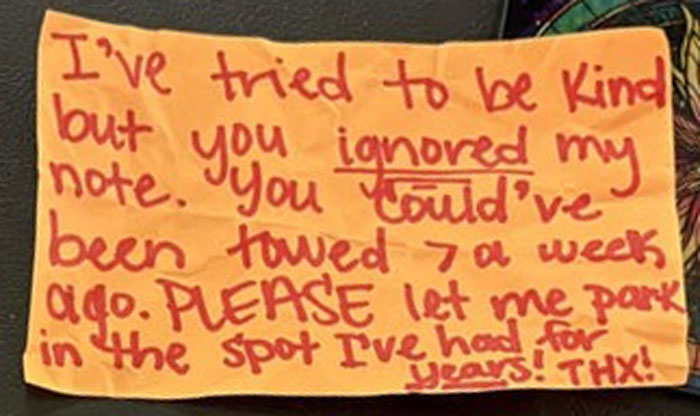 I've tried to be kind
but you ignored my
note. You could've
been towed > a week
ago. PLEASE let me park
in the spot I've had for
years! THX!